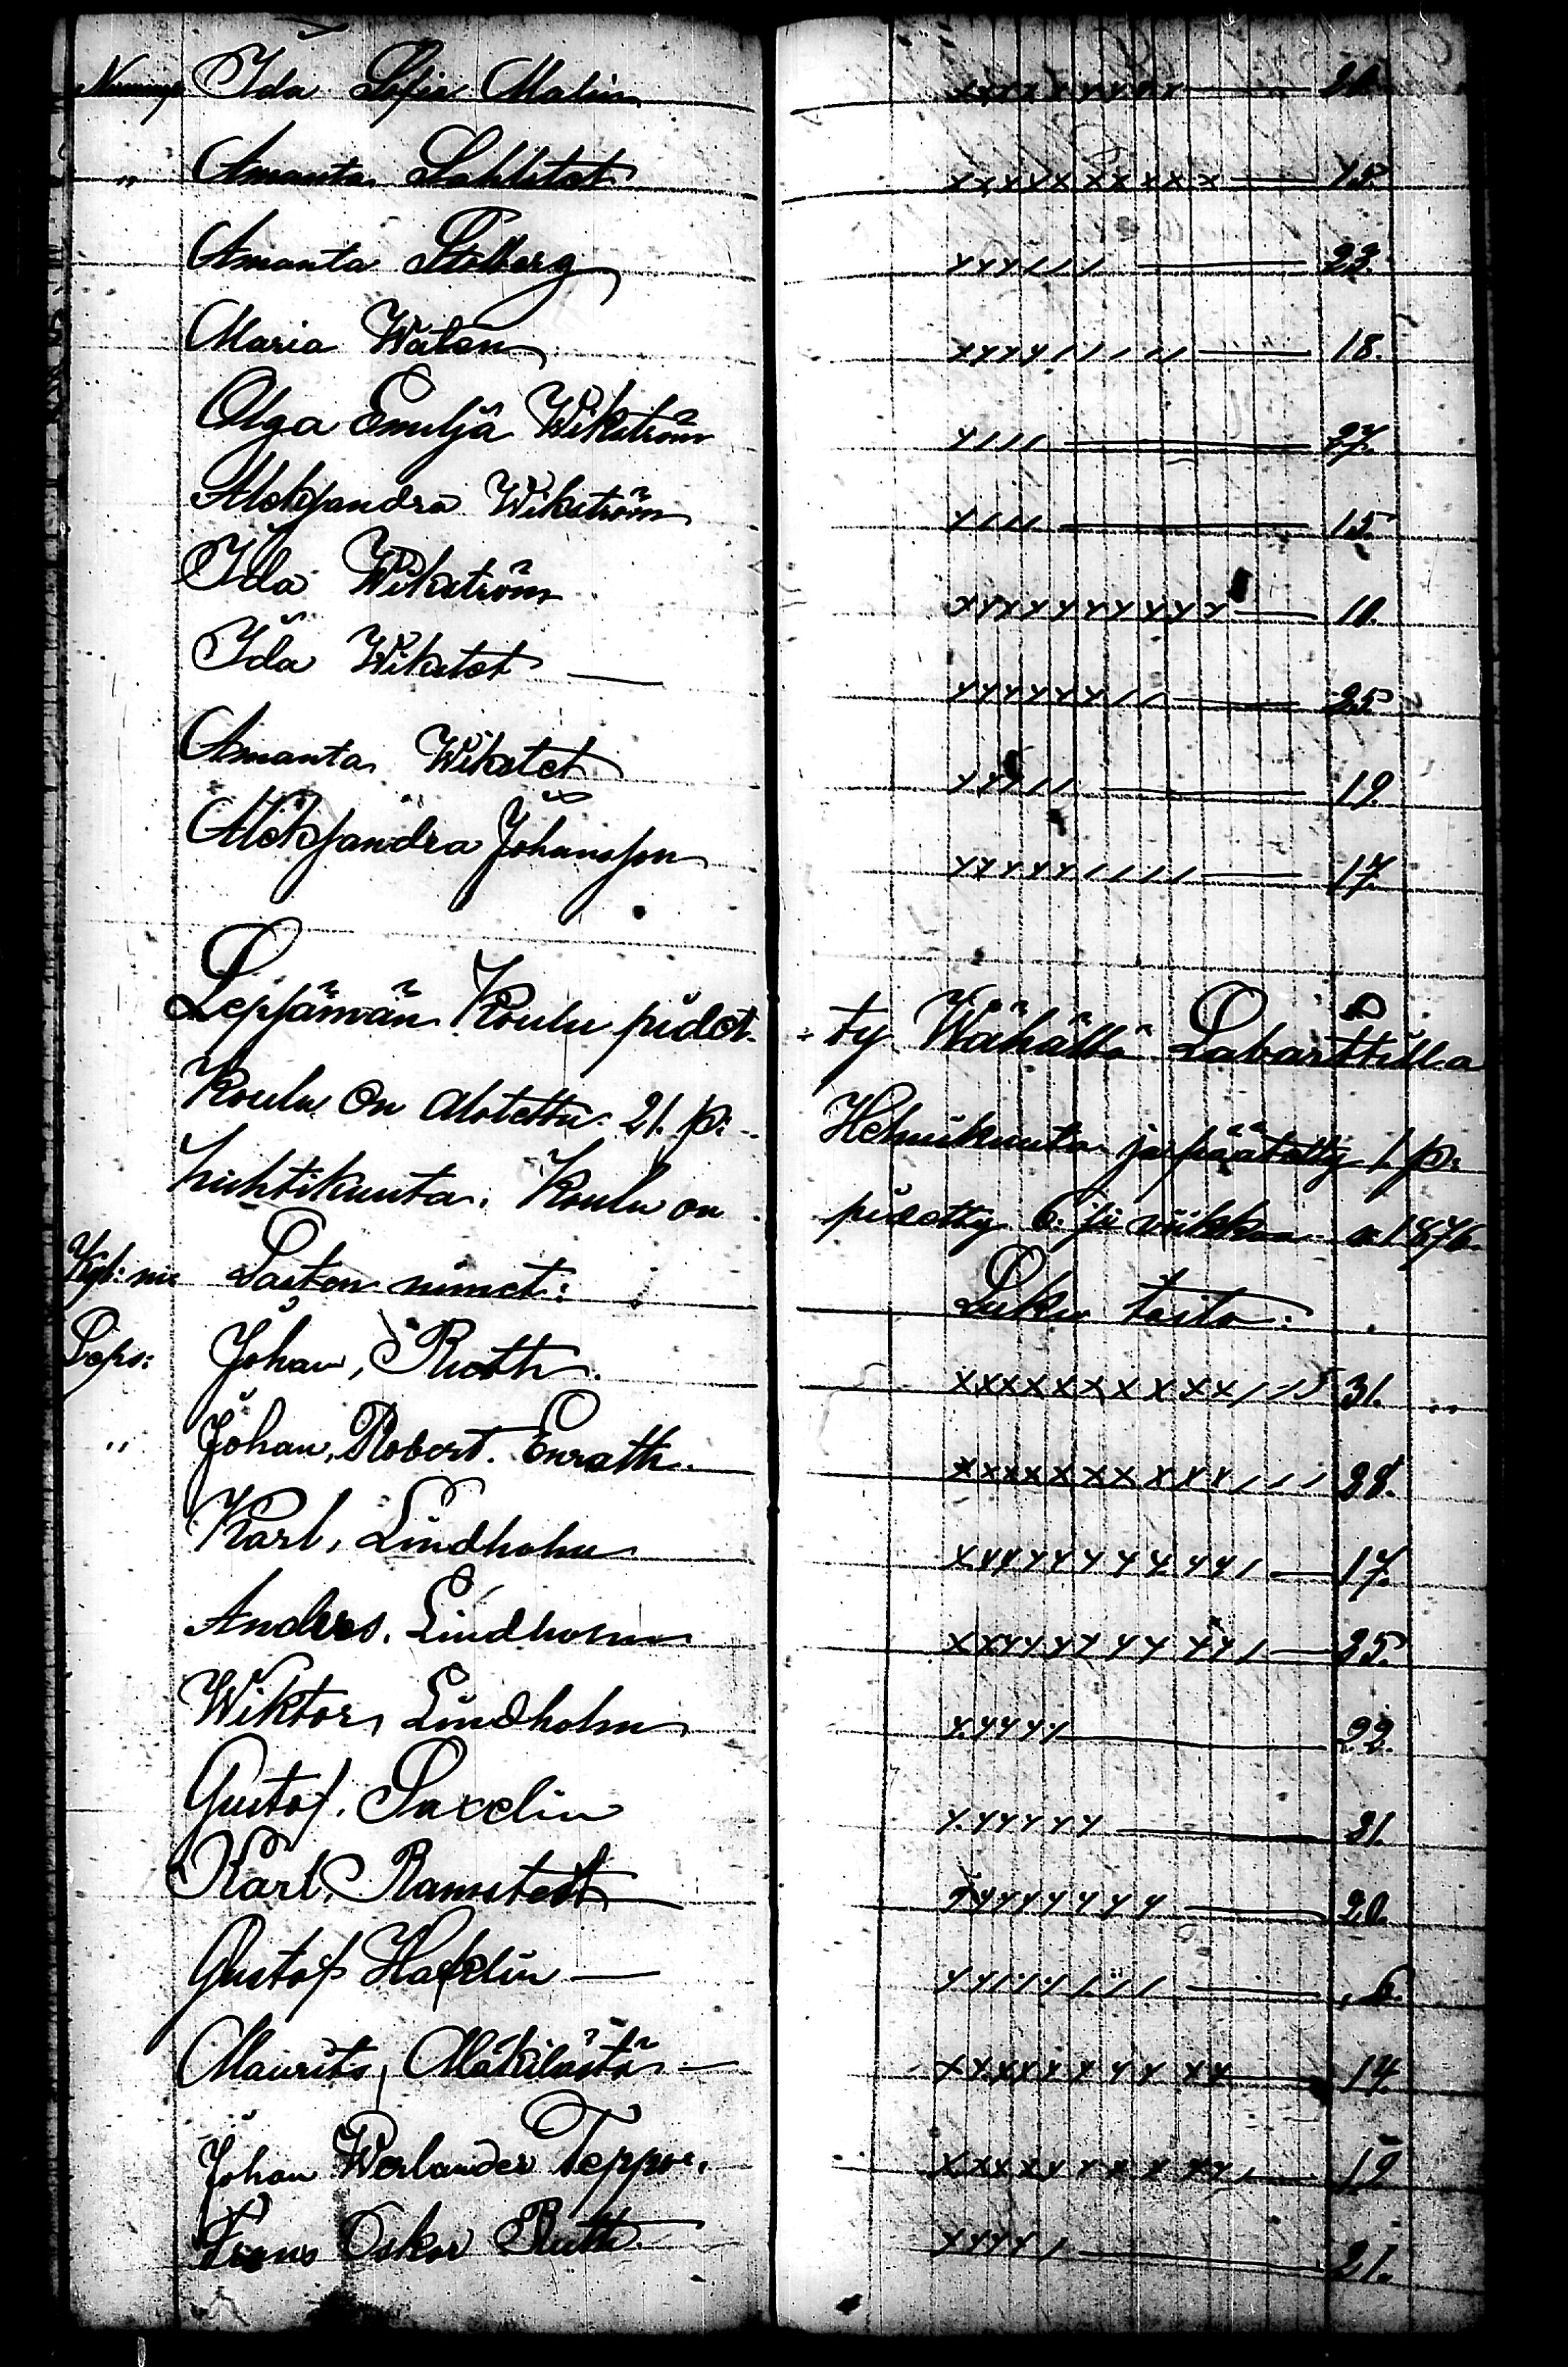 Ida Sofia Malin xxxxxxxxx — 20.
" Amanta Sahlstet xxxxxxxxxx — 15.
Amanta Stålberg xxx/// — 23.
Maria Walen xxxx///// — 18.
Olga Emiljä Wikström x/// — 27.
Aleksandra Wikström x/// — 15.
Ida Wikström xxxxxxxxxx — 10.
Ida Wikstet — xxxxxx// — 25.
Amanta Wikstet xxx// — 19.
Aleksandra Johansson xxxxx//// — 17.
Lepjärwän Koulu pidet- ty Wähällä Labarttilla
Koulu on alotettu 21. p: Helmikuuta ja päätetty 1. p:
huhtikuuta. Koulu on pidetty 6. si viikkoa 1876.
Kyl: ni: Lasten nimet: Luku taito:
Leps: Johan, Ruoth. xxxxxxxxxxx// 31.
" Johan, Robert. Enrath. xxxxxxxxxx/// 28.
Karl, Lindholm xxxxxxxxxx/ — 17.
Anders. Lindholm xxxxxxxxxx/ — 25.
Wiktor, Lindholm xxxxx — 22.
Gustof. Saxelin xxxxxx — 21.
Karl, Ramstedt xxxxxxxx — 20.
Gustof Hafelin — — 6.
Maurits, Mäkilästä — xxxxxxxxxx — 14.
Johan Werlander Teppo. — 19.
Frans Oskar Ruth. xxxx/ — 21.